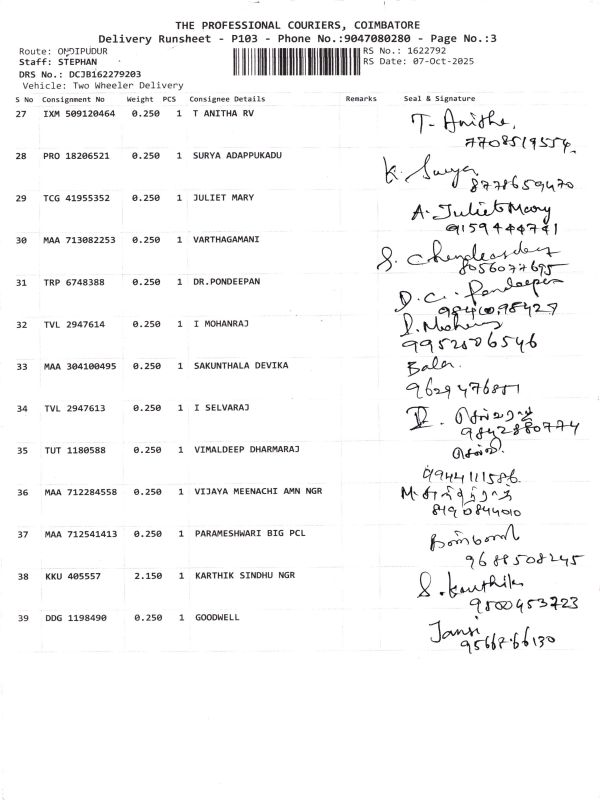 THE PROFESSIONAL COURIERS, COIMBATORE
Delivery Runsheet - P103 - Phone No.:9047080280 - Page No.:3
Route: ONDIPUDUR
RS No.: 1622792
Staff: STEPHAN
RS Date: 07-Oct-2025
DRS No.: DCJB162279203
Vehicle: Two Wheeler Delivery
S No Consignment No Weight PCS Consignee Details Remarks Seal & Signature
27 IXM 509120464 0.250 1 T ANITHA RV T. Anitha,
7708519554
28 PRO 18206521 0.250 1 SURYA ADAPPUKADU K. Surya
8778659470
29 TCG 41955352 0.250 1 JULIET MARY A. Juliet Mary
9159444741
30 MAA 713082253 0.250 1 VARTHAGAMANI
8056077695
31 TRP 6748388 0.250 1 DR.PONDEEPAN D.C. Pondeepan
32 TVL 2947614 0.250 1 I MOHANRAJ
9952506546
33 MAA 304100495 0.250 1 SAKUNTHALA DEVIKA Bala.
9629476851
34 TVL 2947613 0.250 1 I SELVARAJ I. செல்வராஜ்
9842880774
35 TUT 1180588 0.250 1 VIMALDEEP DHARMARAJ செல்வி
9944111586
36 MAA 712284558 0.250 1 VIJAYA MEENACHI AMN NGR
8190844010
37 MAA 712541413 0.250 1 PARAMESHWARI BIG PCL
9688508245
38 KKU 405557 2.150 1 KARTHIK SINDHU NGR S. Karthik
9500453723
39 DDG 1198490 0.250 1 GOODWELL Jansi